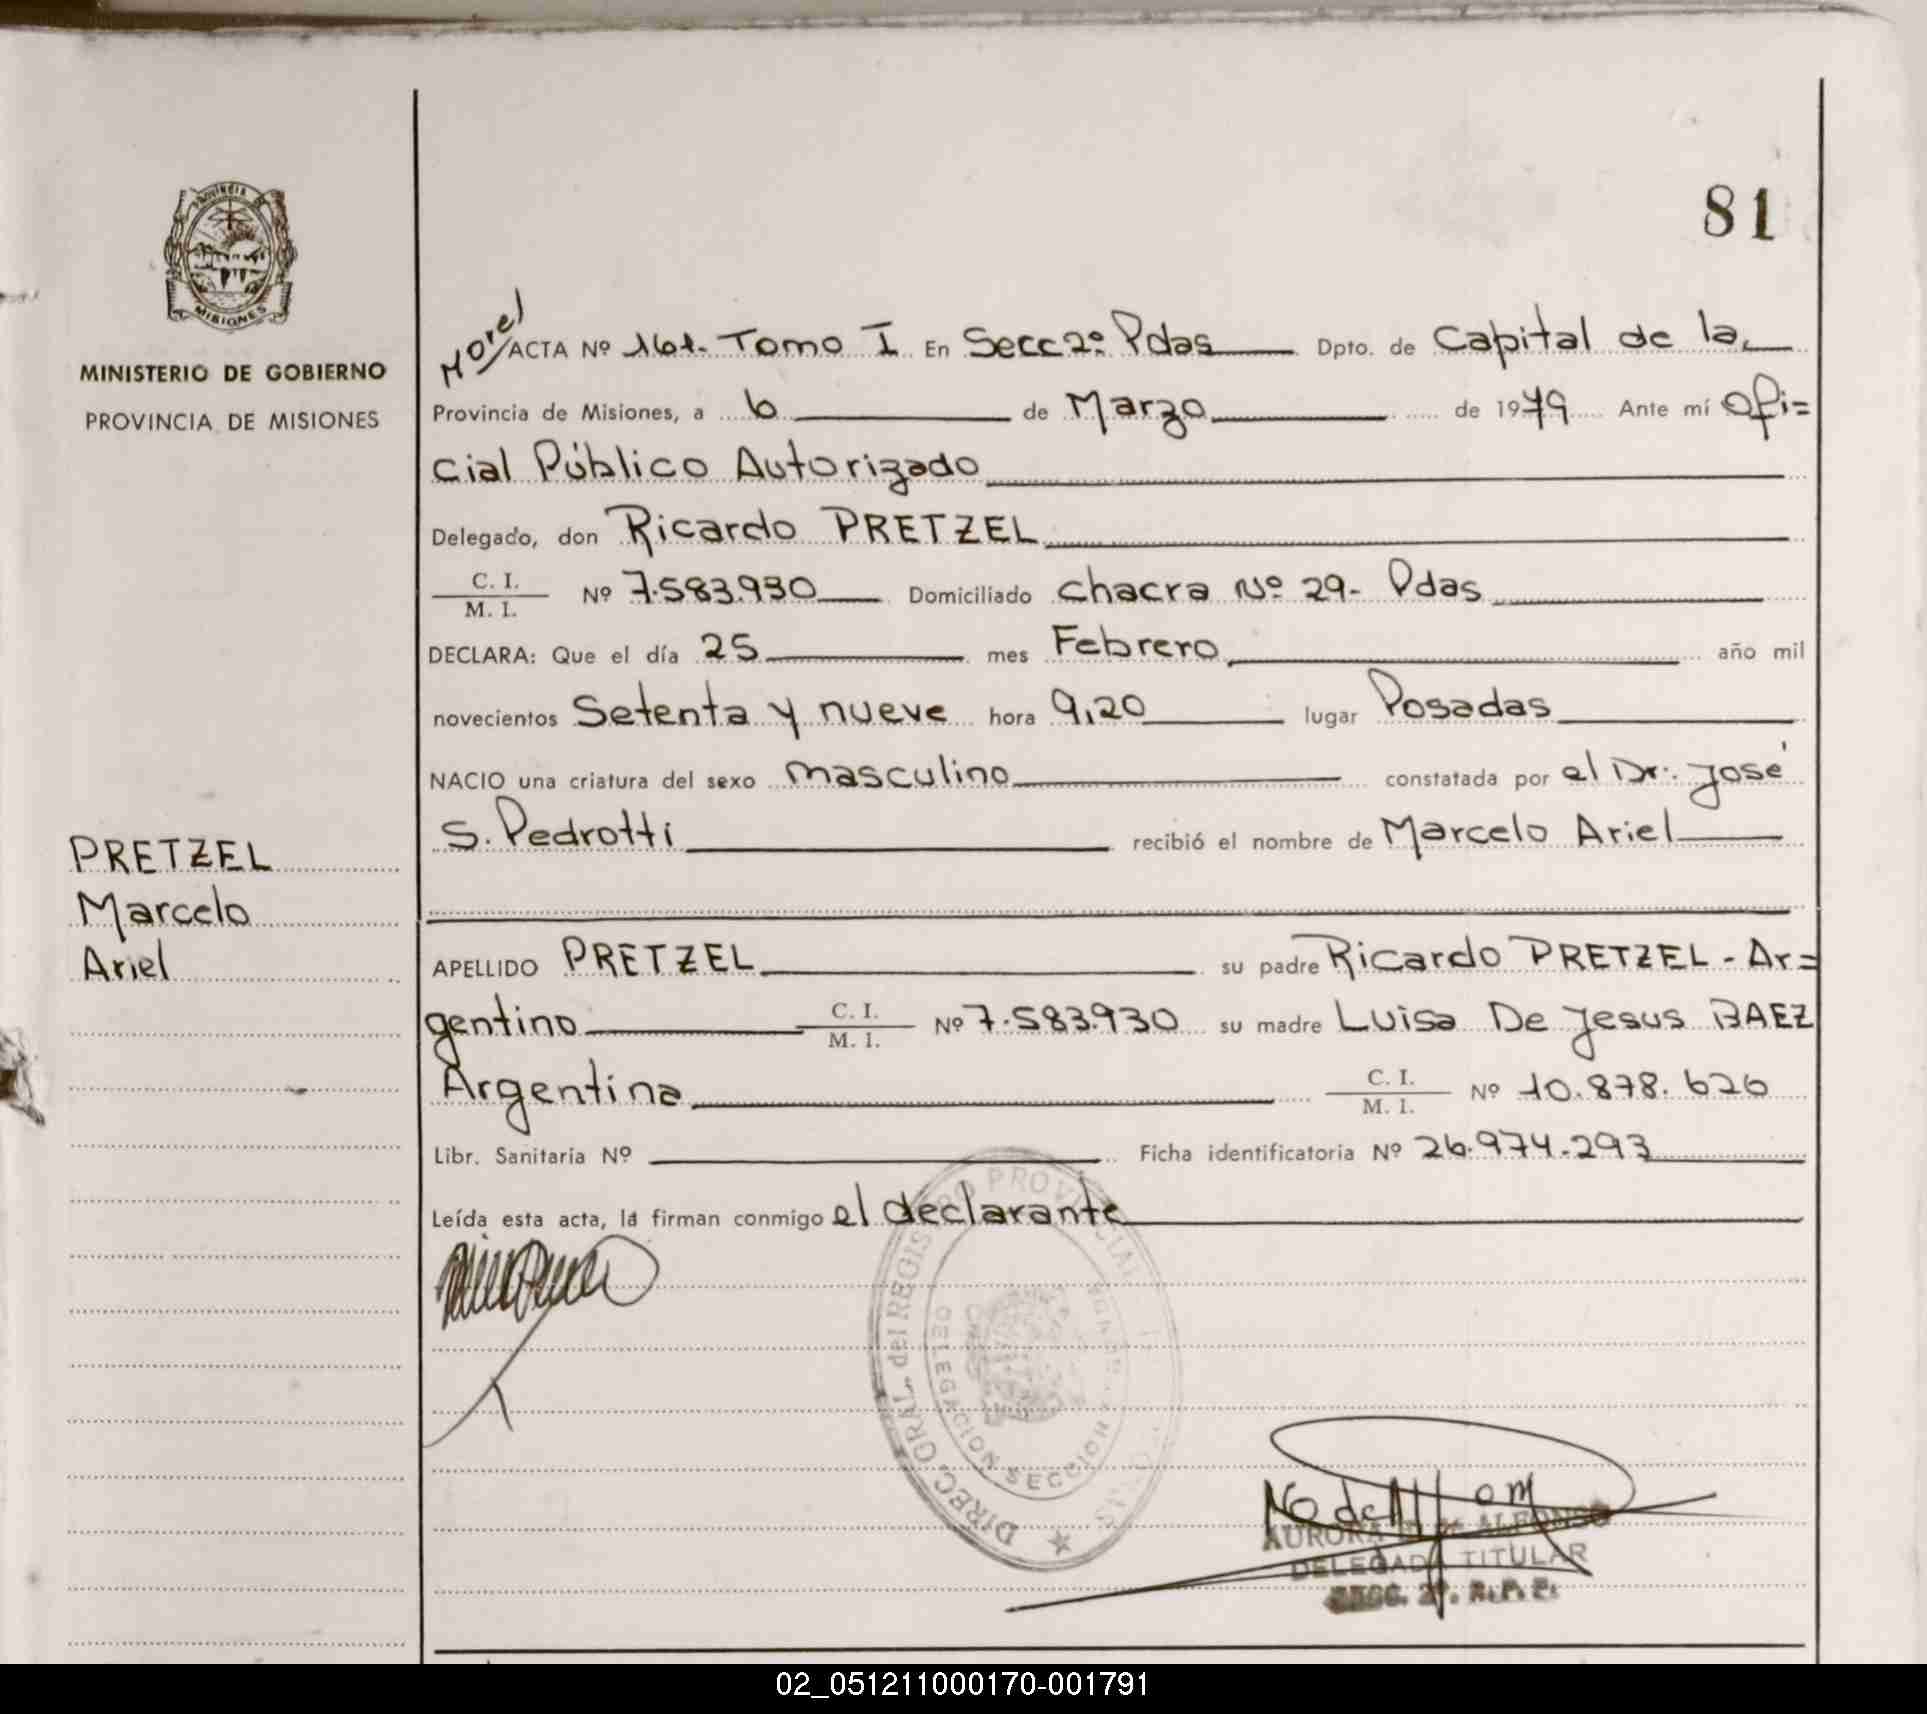 81
PROVINCIA DE
MISIONES
MINISTERIO DE GOBIERNO
PROVINCIA DE MISIONES
PRETZEL
Marcelo
Ariel
Morel
ACTA Nº 161. Tomo I En Secc 2º Pdas Dpto. de Capital de la
Provincia de Misiones, a 6 de Marzo de 1979 Ante mí Ofi=
cial Público Autorizado
Delegado, don Ricardo PRETZEL
C. I.
M. I. Nº 7.583.930 Domiciliado Chacra Nº 29- Pdas
DECLARA: Que el día 25 mes Febrero año mil
novecientos Setenta y nueve hora 9,20 lugar Posadas
NACIO una criatura del sexo masculino constatada por el Dr: José
S. Pedrotti recibió el nombre de Marcelo Ariel
APELLIDO PRETZEL su padre Ricardo PRETZEL - Ar=
gentino C. I.
M. I. Nº 7.583.930 su madre Luisa De Jesus BAEZ
Argentina C. I.
M. I. Nº 10.878.626
Libr. Sanitaria Nº Ficha identificatoria Nº 26.974.293
Leída esta acta, la firman conmigo el declarante
DIREC. GRAL. del REGISTRO PROVINCIAL
DELEGACION SECCION
AURORA de ALFONSO
DELEGADA TITULAR
SECC. 2ª. R.P.P.
02_051211000170-001791